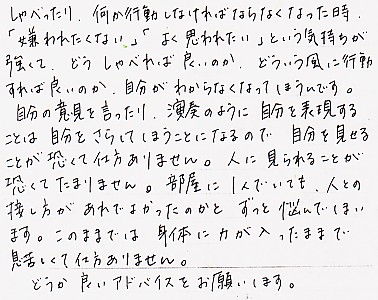 しゃべったり、何か行動しなければならなくなった時、
「嫌われたくない」「よく思われたい」という気持ちが
強くて、どうしゃべれば良いのか、どういう風に行動
すれば良いのか、自分がわからなくなってしまうんです。
自分の意見を言ったり、演奏のように自分を表現する
ことは自分をさらしてしまうことになるので、自分を見せる
ことが恐くて仕方ありません。人に見られることが
恐くてたまりません。部屋に1人でいても、人との
接し方があれでよかったのかと ずっと悩んでしまい
ます。このままでは身体に力が入ったままで
息苦しくて仕方ありません。
どうか良いアドバイスをお願いします。